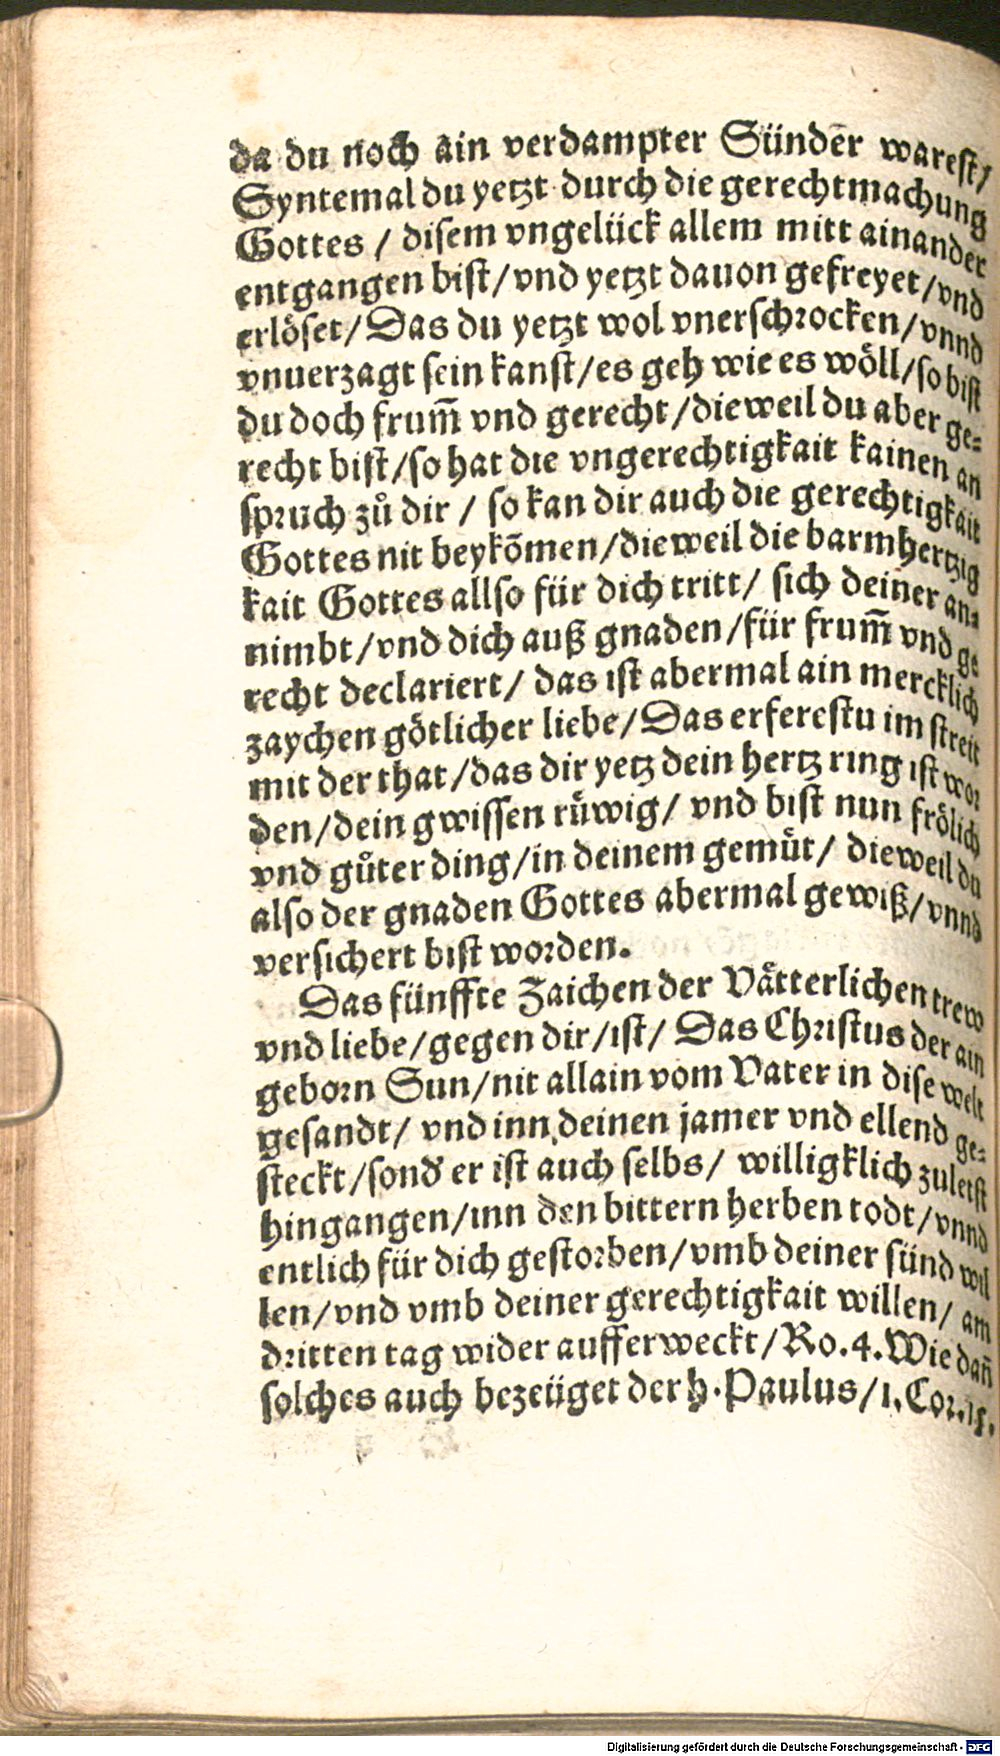 da du noch ain verdampter Sünder warest/
Syntemal du yetzt durch die gerechtmachung
Gottes / disem vngelück allem mitt ainander
entgangen bist/vnd yetzt dauon gefreyet/vnd
erlöset/Das du yetzt wol vnerschrocken/vnnd
vnuerzagt sein kanst/es geh wie es wöll/so bist
du doch frum̃ vnd gerecht/dieweil du aber ge⸗
recht bist/so hat die vngerechtigkait kainen an
spruch zů dir / so kan dir auch die gerechtigkait
Gottes nit beykõmen/dieweil die barmhertzig
kait Gottes allso für dich tritt/ sich deiner an⸗
nimbt/vnd dich auß gnaden/für frum̃ vnd ge
recht declariert/ das ist abermal ain mercklich
zaychen götlicher liebe/Das erferestu im streit
mit der that/das dir yetz dein hertz ring ist wor
den/dein gwissen rüwig/ vnd bist nun frölich
vnd gůter ding/in deinem gemüt/ dieweil du
also der gnaden Gottes abermal gewiß/vnnd
versichert bist worden.
Das fünffte Zaichen der Vätterlichen trew
vnd liebe/gegen dir/ist/ Das Christus der ain
geborn Sun/nit allain vom Vater in dise welt
gesandt/ vnd inn deinen jamer vnd ellend ge⸗
steckt/sond̕ er ist auch selbs/ willigklich zuletst
hingangen/inn den bittern herben todt/vnnd
entlich für dich gestorben/vmb deiner sünd wil
len/vnd vmb deiner gerechtigkait willen/ am
dritten tag wider aufferweckt/Ro.4.Wie dañ
solches auch bezeüget der h. Paulus/1.Cor.15.
Digitalisierung gefördert durch die Deutsche Forschungsgemeinschaft - DFG